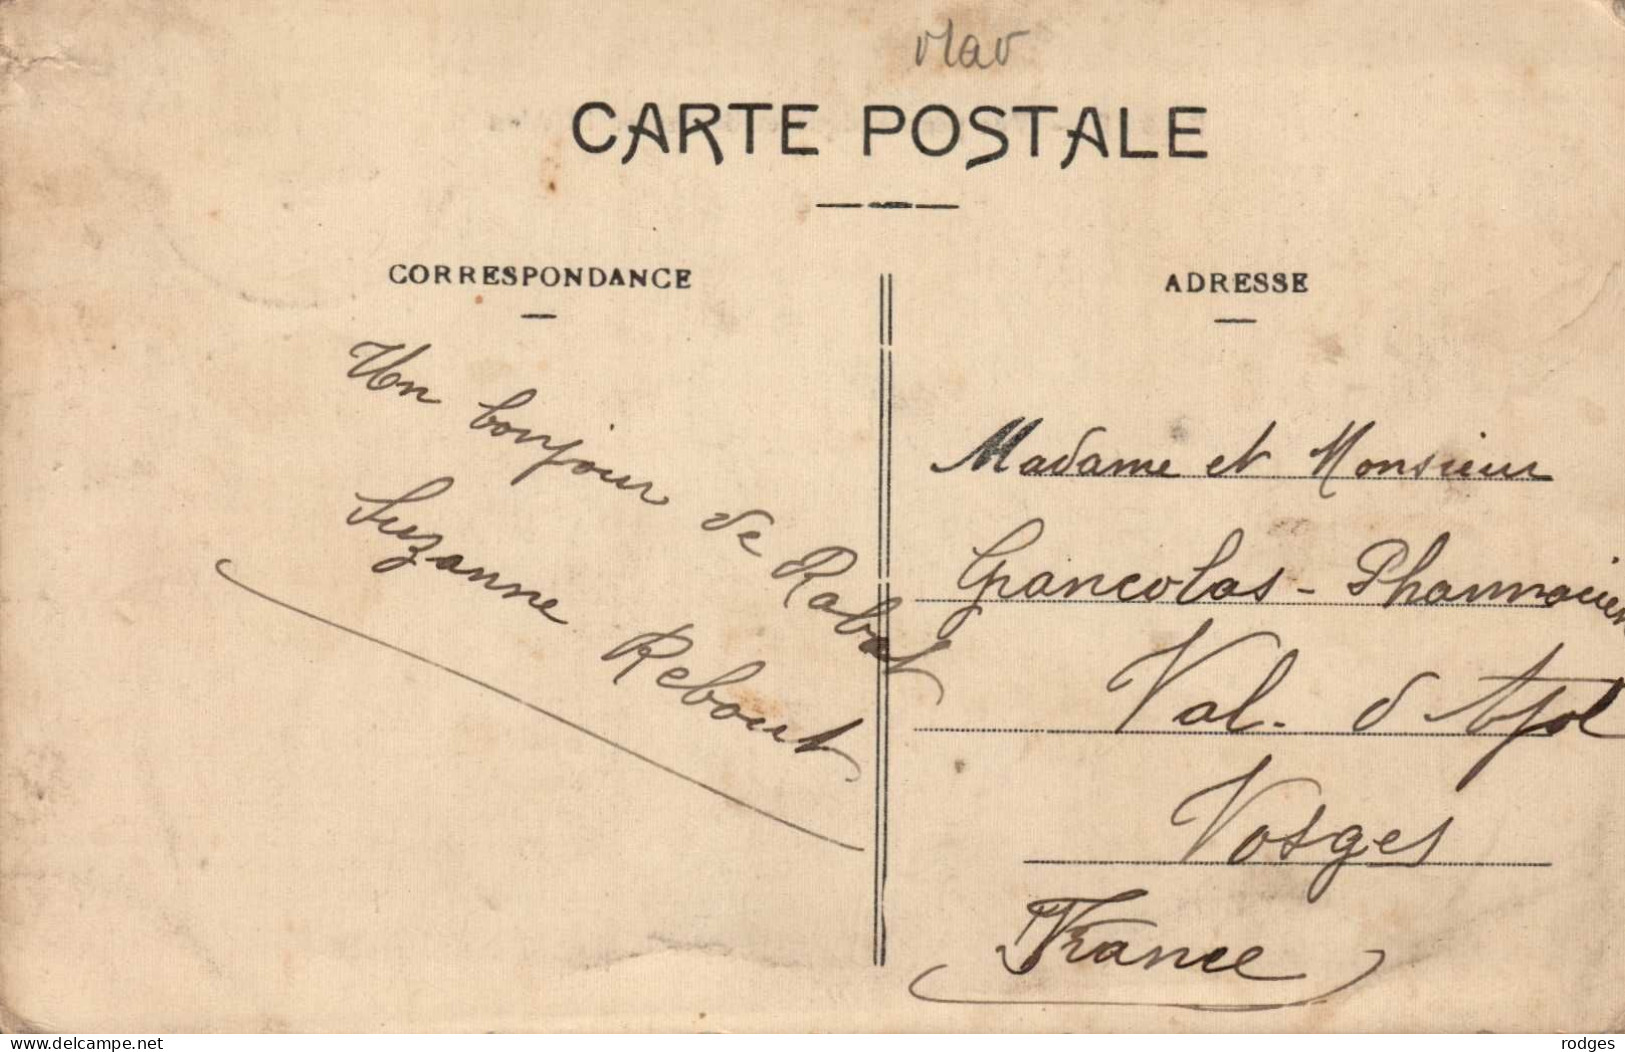 CARTE POSTALE
CORRESPONDANCE
Un bonjour de Rabat
Suzanne Rebout
ADRESSE
Madame et Monsieur
Grancolas - Pharmacien
Val. d'Ajol
Vosges
France
delcampe.net
rodges